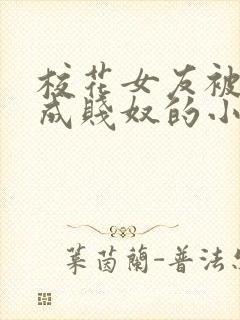 校花女友被
成賤奴的小
葉茵蘭-普法